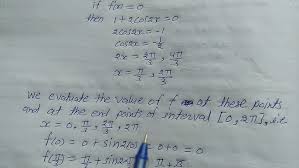 if f'(x) = 0
then 1 + 2cos2x = 0
2cos2x = -1
cos2x = -1/2
2x = 2π/3, 4π/3
x = π/3, 2π/3
we evaluate the value of f at these points
and at the end points of interval [0, 2π], i.e
x = 0, π/3, 2π/3, 2π
f(0) = 0 + sin2(0) = 0 + 0 = 0